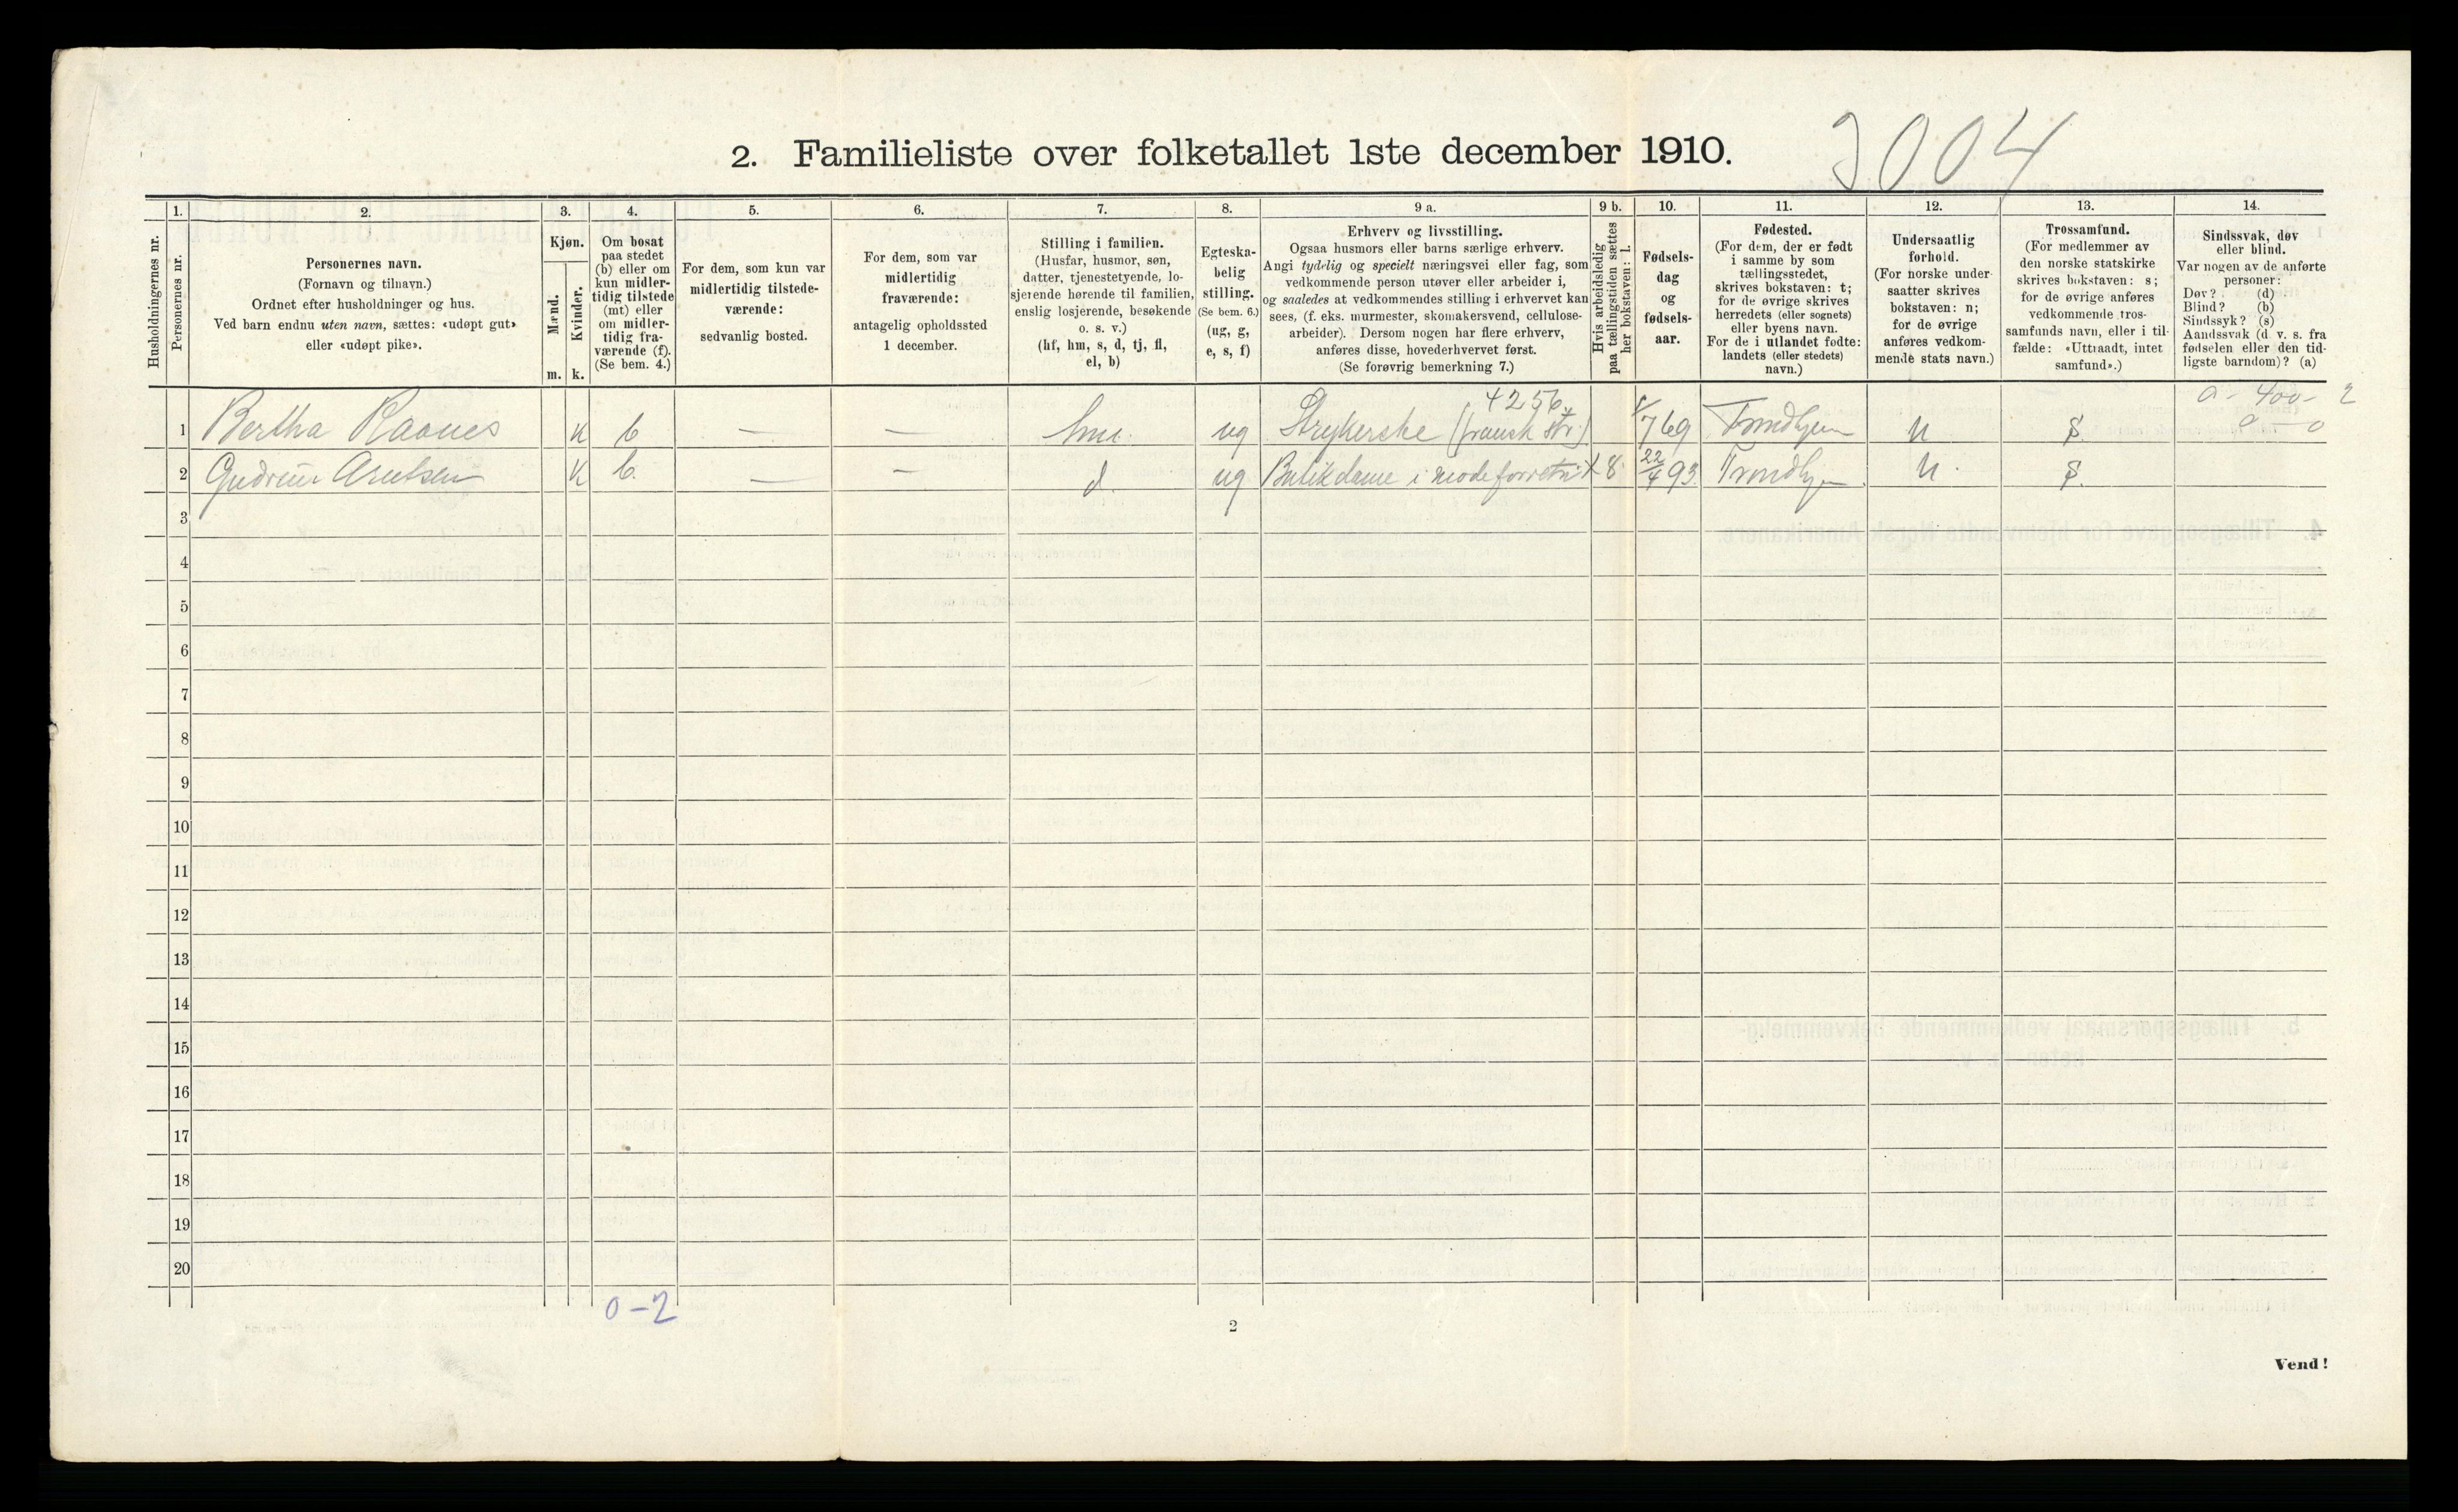 2. Familieliste over folketallet 1ste december 1910.
3004
1. 2. 3. 4. 5. 6. 7. 8. 9 a. 9 b. 10. 11. 12. 13. 14.
Husholdningernes nr.
Personernes nr.
Personernes navn.
(Fornavn og tilnavn.)
Ordnet efter husholdninger og hus.
Ved barn endnu uten navn, sættes: «udøpt gut»
eller «udøpt pike».
Kjøn.
Mænd.
Kvinder.
m. k.
Om bosat
paa stedet
(b) eller om
kun midler-
tidig tilstede
(mt) eller
om midler-
tidig fra-
værende (f).
(Se bem. 4.)
For dem, som kun var
midlertidig tilstede-
værende:
sedvanlig bosted.
For dem, som var
midlertidig
fraværende:
antagelig opholdssted
1 december.
Stilling i familien.
(Husfar, husmor, søn,
datter, tjenestetyende, lo-
sjerende hørende til familien,
enslig losjerende, besøkende
o. s. v.)
(hf, hm, s, d, tj, fl,
el, b)
Egteska-
belig
stilling.
(Se bem. 6.)
(ug, g,
e, s, f)
Erhverv og livsstilling.
Ogsaa husmors eller barns særlige erhverv.
Angi tydelig og specielt næringsvei eller fag, som
vedkommende person utøver eller arbeider i,
og saaledes at vedkommendes stilling i erhvervet kan
sees, (f. eks. murmester, skomakersvend, cellulose-
arbeider). Dersom nogen har flere erhverv,
anføres disse, hovederhvervet først.
(Se forøvrig bemerkning 7.)
Hvis arbeidsledig
paa tællingstiden sættes
her bokstaven: l.
Fødsels-
dag
og
fødsels-
aar.
Fødested.
(For dem, der er født
i samme by som
tællingsstedet,
skrives bokstaven: t;
for de øvrige skrives
herredets (eller sognets)
eller byens navn.
For de i utlandet fødte:
landets (eller stedets)
navn.)
Undersaatlig
forhold.
(For norske under-
saatter skrives
bokstaven: n;
for de øvrige
anføres vedkom-
mende stats navn.)
Trossamfund.
(For medlemmer av
den norske statskirke
skrives bokstaven: s;
for de øvrige anføres
vedkommende tros-
samfunds navn, eller i til-
fælde: «Uttraadt, intet
samfund».)
Sindssvak, døv
eller blind.
Var nogen av de anførte
personer:
Døv? (d)
Blind? (b)
Sindssyk? (s)
Aandssvak (d. v. s. fra
fødselen eller den tid-
ligste barndom)? (a)
4256. 0 - 400 - 2
1 Bertha Raanes K b — — hm. ug Strykerske (fransk str.) 769 Trondhjem n s 0 — 0
2 Gudrun Arntsen K b. — — d. ug Butikdame i modeforretn. X 8. 22/4 93. Trondhjem n. s.
3
4
5
6
7
8
9
10
11
12
13
14
15
16
17
18
19
20
0-2
2
Vend!